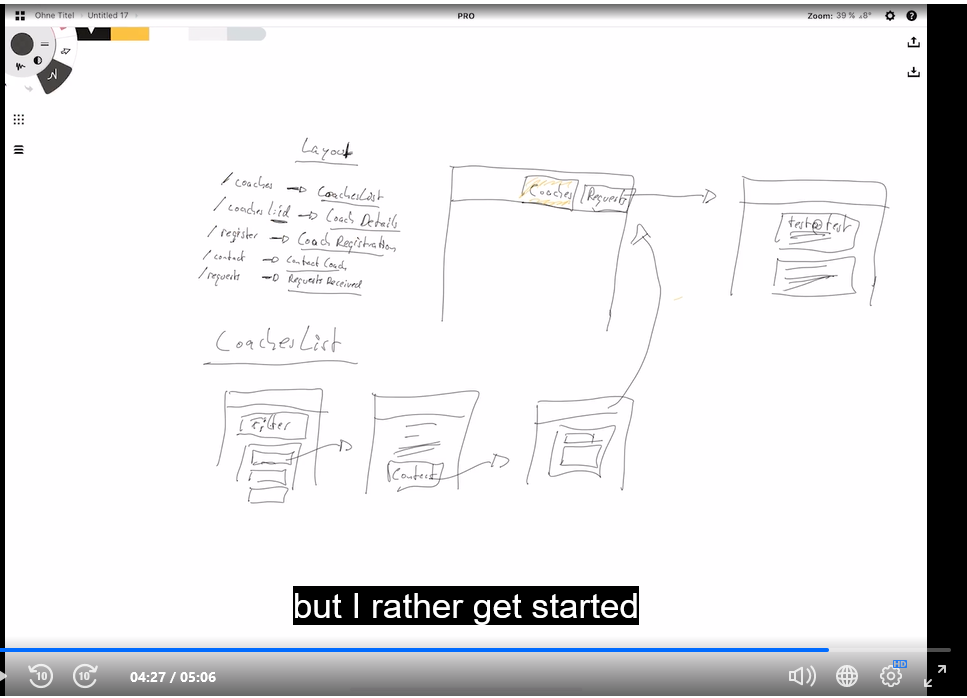 Ohne Titel Untitled 17
PRO
Zoom: 39 % 8°
Layout
/coaches → CoachesList
/coaches/:id → Coach Details
/register → Coach Registration
/contact → Contact Coach
/requests → Requests Received
Coaches Requests
test@test
CoachesList
Filter
Contact
but I rather get started
10 10 04:27 / 05:06
HD